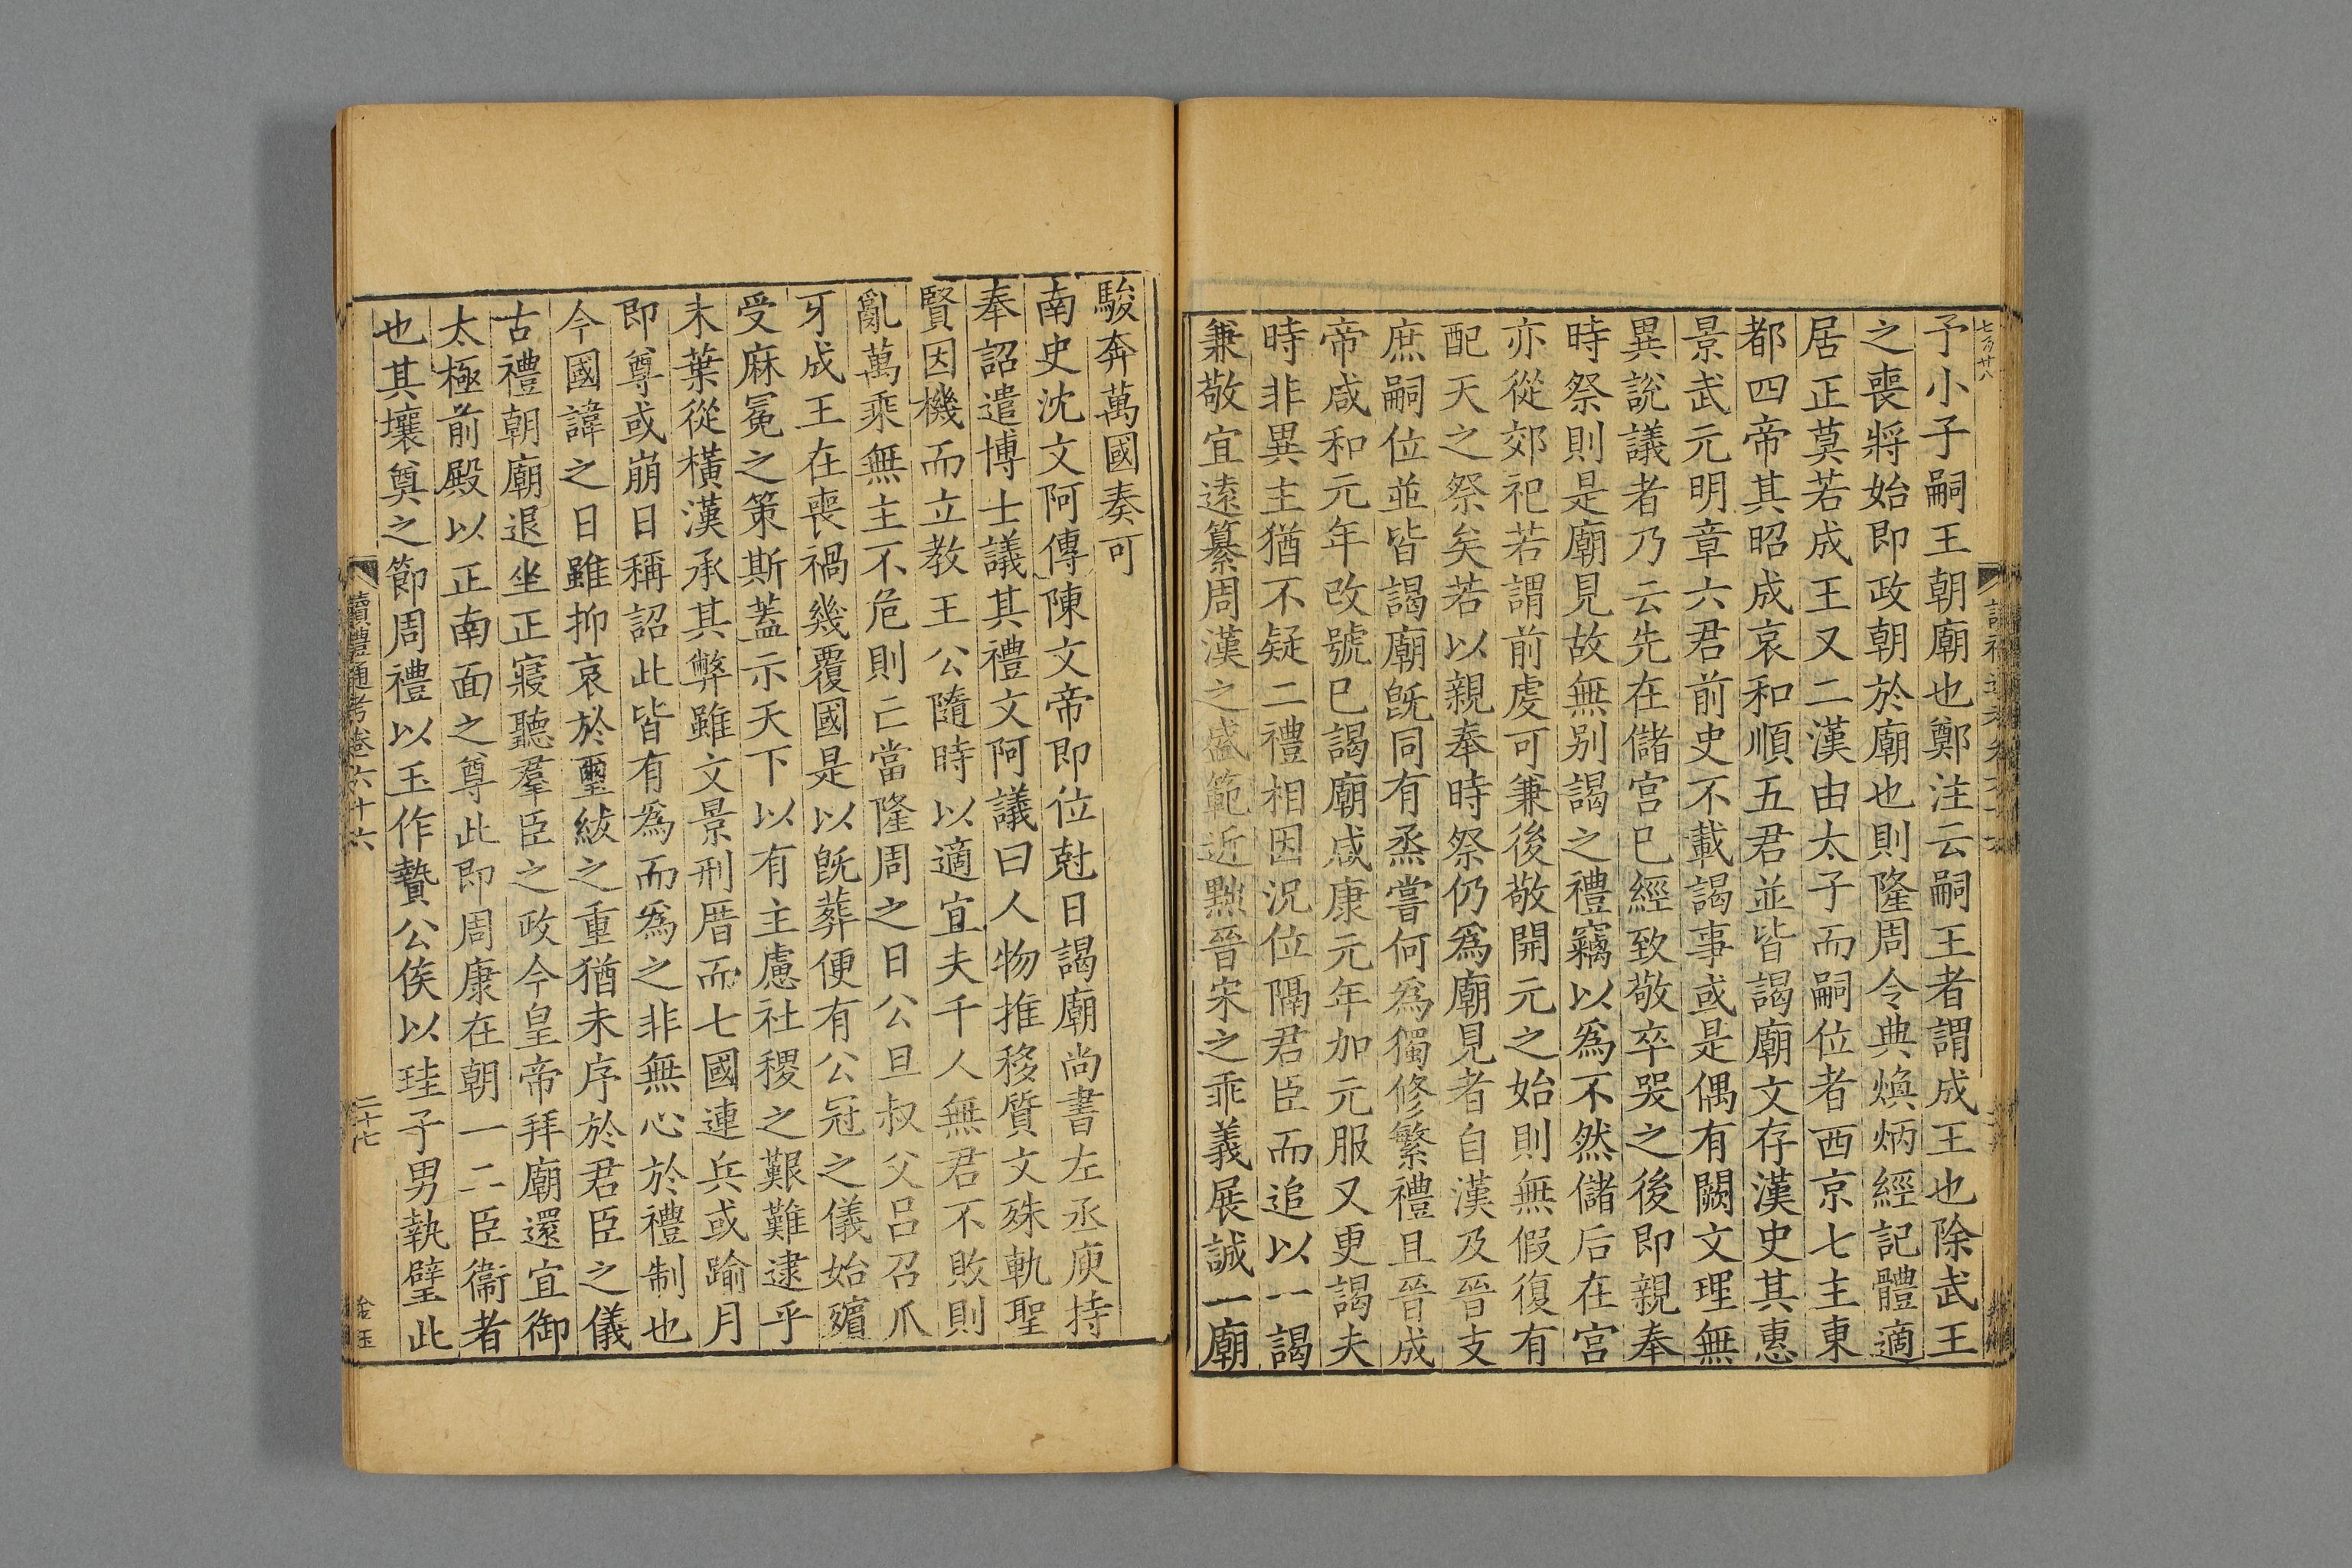 予小子嗣王朝廟也鄭注云嗣王者謂成王也除武王
之喪將始即政朝於廟也則隆周令典煥炳經記體適
居正莫若成王又二漢由太子而嗣位者西京七主東
都四帝其昭成哀和順五君並皆謁廟文存漢史其惠
景武元明章六君前史不載謁事或是偶有闕文理無
異說議者乃云先在儲宮已經致敬卒哭之後即親奉
時祭則是廟見故無别謁之禮竊以爲不然儲后在宮
亦從郊祀若謂前虔可兼後敬開元之始則無假復有
配天之祭矣若以親奉時祭仍爲廟見者自漢及晉支
庶嗣位並皆謁廟旣同有烝嘗何爲獨修繁禮且晉成
帝咸和元年改號已謁廟咸康元年加元服又更謁夫
時非異主猶不疑二禮相因況位隔君臣而追以一謁
兼敬宜遠纂周漢之盛範近黜晉宋之乖義展誠一廟
駿奔萬國奏可
南史沈文阿傳陳文帝即位尅日謁廟尚書左丞庾持
奉詔遣博士議其禮文阿議曰人物推移質文殊軌聖
賢因機而立教王公隨時以適宜夫千人無君不敗則
亂萬乘無主不危則亡當隆周之日公旦叔父呂召爪
牙成王在喪禍幾覆國是以旣葬便有公冠之儀始殯
受麻冕之策斯蓋示天下以有主慮社稷之艱難逮乎
末葉從橫漢承其弊雖文景刑厝而七國連兵或踰月
即尊或崩日稱詔此皆有爲而爲之非無心於禮制也
今國諱之日雖抑哀於璽紱之重猶未序於君臣之儀
古禮朝廟退坐正寢聽羣臣之政今皇帝拜廟還宜御
太極前殿以正南面之尊此即周康在朝一二臣衞者
也其壤奠之節周禮以玉作贄公侯以珪子男執璧此
讀禮通考卷六十六
二十七